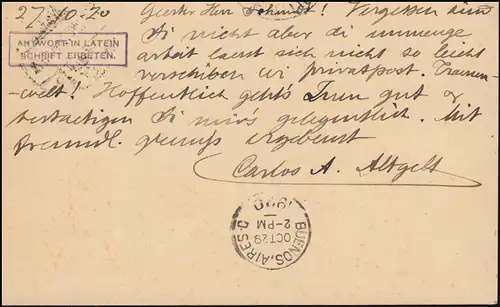 27/10.20
Geehr Herr Schmidt! Vergessen sind
ANTWORT IN LATEIN
SCHRIFT ERBETEN.
Si nicht aber di unmenge
arbeit laest sich nicht so leicht
verschiben wi privatpost. Traumen
-welt! Hoffentlich geht's Inen gut &
bestaetigen Si mirs gelegentlich. Mit
freundl. gruess ergebenst
Carlos A. Altgelt
1920
2-PM
OCT 29
BUENOS.AIRES